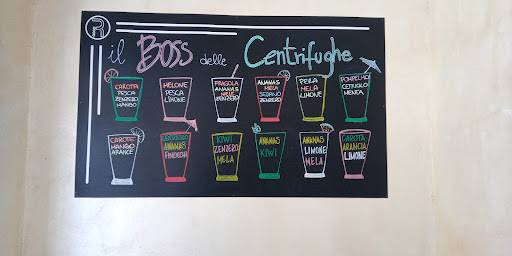 R
il Boss delle Centrifughe
CAROTA
PESCA
ZENZERO
MANGO
MELONE
PESCA
LIMONE
FRAGOLA
ANANAS
MELE
ZENZERO
ANANAS
MELA
SEDANO
ZENZERO
PERA
MELA
LIMONE
POMPELMO
CETRIOLO
MENTA
CAROTE
MANGO
ARANCE
ANANAS
FINOCCHI
KIWI
ZENZERO
MELA
ANANAS
KIWI
ANANAS
LIMONE
MELA
CAROTA
ARANCIA
LIMONE